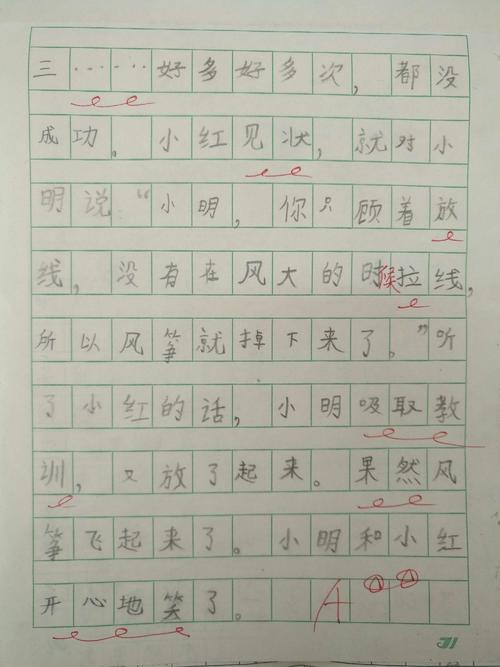 三……好多好多次，都没
成功。小红见状，就对小
明说：“小明，你只顾着放
线，没有在风大的时候拉线，
所以风筝就掉下来了。”听
了小红的话，小明吸取教
训，又放了起来。果然风
筝飞起来了。小明和小红
开心地笑了。 A